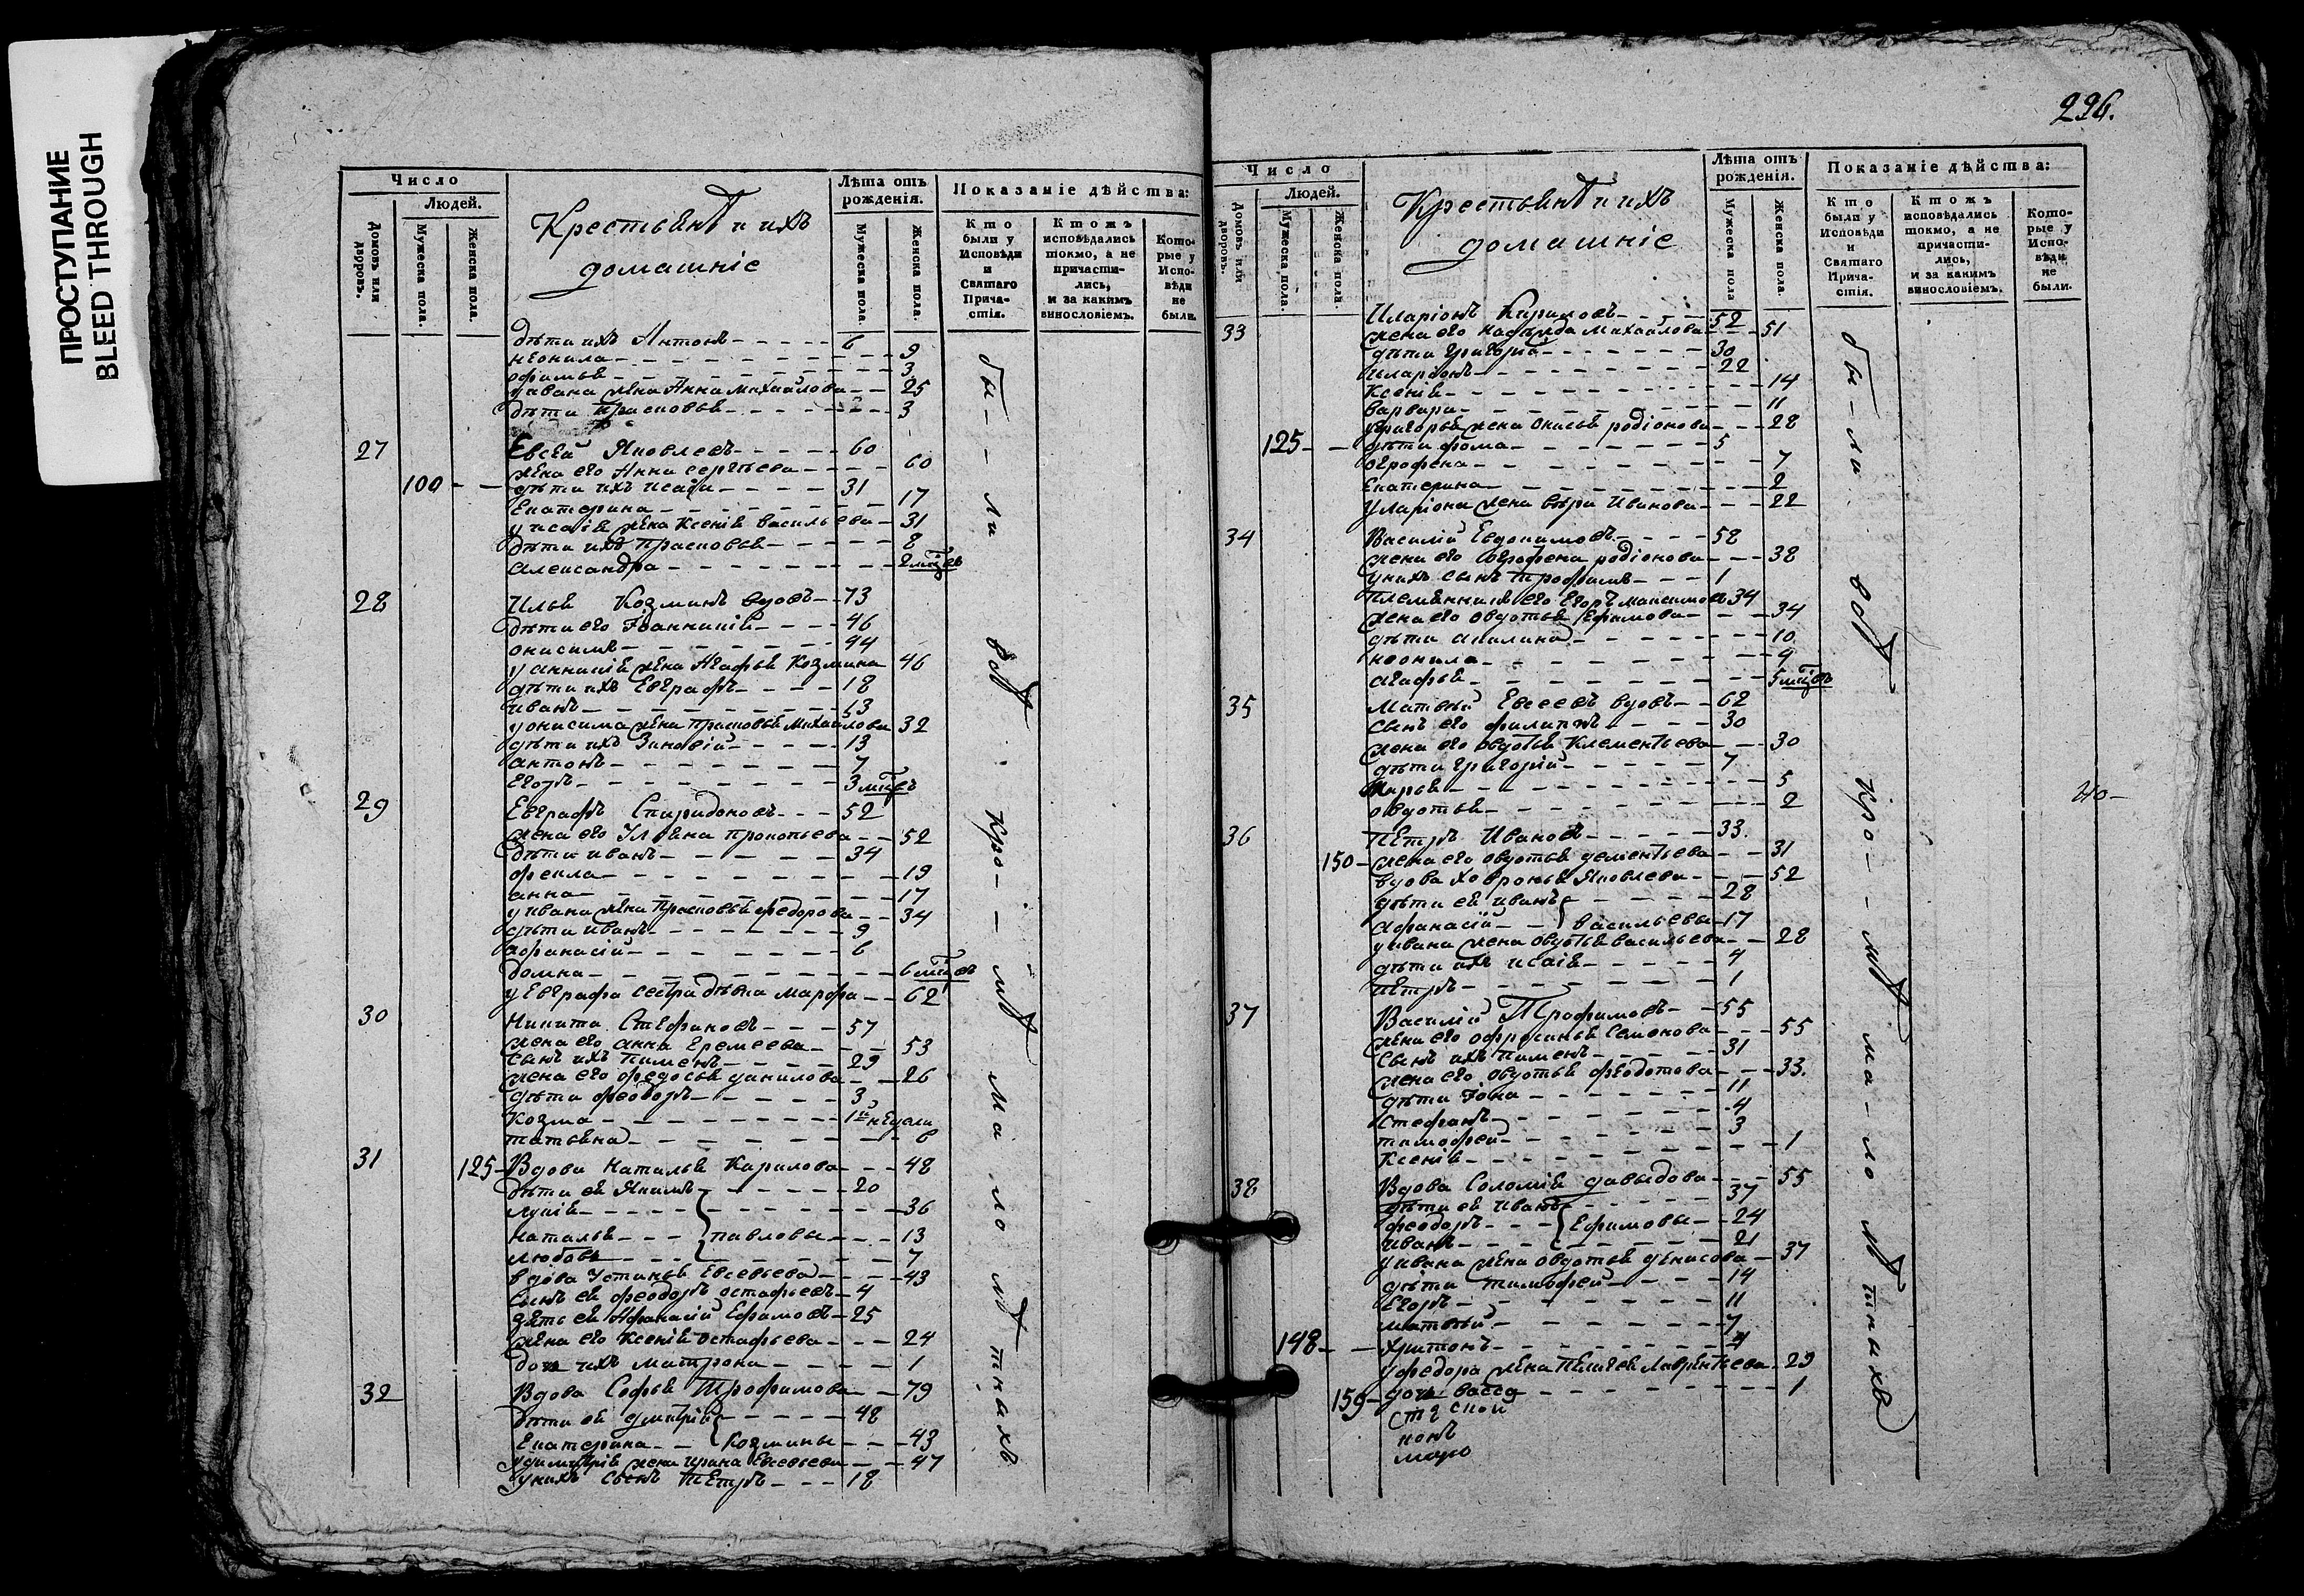 ПРОСТУПАНИЕ
BLEED THROUGH
Число
Людей.
Домовъ или дворовъ.
Мужеска пола.
Женска пола.
Крестьянѣ и ихъ
домашніе
Лѣта отъ рожденія.
Мужеска пола.
Женска пола.
Показаніе дѣйства:
Кто были у Исповѣди и Святаго Прича-стія.
Ктожъ исповѣдались токмо, а не причасти-лись, и за какимъ винословіемъ.
Кото-рые у Испо-вѣди не были.
дѣти ихъ Антонъ 6
неонила 9
офимья 3
у ивана жена Анна михайлова 25
дѣти Прасковья 3
27 Евсей Яковлевъ 60
жена его Анна сергѣева 60
100 дѣти ихъ исаія 31
Екатерина 17
у исаія жена Ксенія васильева 31
дѣти ихъ прасковья 8
александра 2 мцъ
28 Илья Козминъ вдовъ 73
дѣти его Іоанникій 46
онисимъ 44
у анникія жена Агафья Козмина 46
дѣти ихъ Евграфъ 18
иванъ 13
у онисима жена прасковья михайлова 32
дѣти ихъ Зиновій 13
антонъ 7
Егоръ 3 мцъ
29 Евграфъ Спиридоновъ 52
жена его Ульяна прокопьева 52
дѣти иванъ 34
фекла 19
анна 17
у ивана жена прасковья федорова 34
дѣти иванъ 9
афанасій 6
домна 6 мцъ
у Евграфа сестра дѣвка марфа 62
30 Никита Стефановъ 57
жена его анна Еремеева 53
сынъ ихъ пименъ 29
жена его федосья данилова 26
дѣти феодоръ 3
Козма 1й нѣдели
татьяна 6
31 125 Вдова Наталья Кирилова 48
дѣти ея Якимъ 20
лукія 36
наталья павловы 13
любовь 7
вдова устинья Евсевьева 43
сынъ ея феодоръ остафьевъ 4
зять ея Афанасій Ефимовъ 25
жена его Ксенія остафьева 24
дочь ихъ матрона 1
32 Вдова Софья Трофимова 79
дѣти ея дмитрій 48
Екатерина Козмины 43
у димитрія жена ирина Евсевьева 47
у нихъ сынъ пЕтръ 18
бы-ли всѣ Кро-мѣ ма ло лѣ тныхъ
226.
Число
Людей.
Домовъ или дворовъ.
Мужеска пола.
Женска пола.
Крестьянѣ и ихъ
домашніе
Лѣта отъ рожденія.
Мужеска пола
Женска пола.
Показаніе дѣйства:
Кто были у Исповѣди и Святаго Прича-стія.
Ктожъ исповѣдались токмо, а не причасти-лись, и за какимъ винословіемъ.
Кото-рые у Испо-вѣди не были.
33 Иларіонъ Кириловъ 52
жена его надежда михайлова 51
дѣти григорій 30
иларіонъ 22
Ксенія 14
варвара 11
у григорья жена онисья родіонова 28
125 дѣти фома 5
огрофена 7
Екатерина 2
у ларіона жена вѣра Иванова 22
34 Василій Евдокимовъ 58
жена его Огрофена родіонова 38
у нихъ сынъ трофимъ 1
племянникъ его Егоръ максимовъ 34
жена его овдотья Ефимова 34
дѣти акилина 10
неонила 4
агафья 5 мцъ
35 Матвѣй Евсеевъ вдовъ 62
сынъ его филиппъ 30
жена его овдотья Клементьева 30
дѣти григорій 7
марья 5
овдотья 2
36 ПЕтръ Ивановъ 33.
150 жена его овдотья дементьева 31
вдова ховронья Яковлева 52
дѣти ея иванъ 28
афанасій васильевы 17
у ивана жена овдотья васильева 28
дѣти ихъ исаія 4
пЕтръ 1
37 Василій Трофимовъ 55
жена его офросинья Семенова 55
сынъ ихъ пименъ 31
жена его овдотья феодотова 33.
дѣти Іона 11
Стефанъ 4
тимофей 3
Ксенія 1
38 Вдова Соломія давыдова 55
дѣти ея иванъ 37
феодоръ Ефимовы 24
иванъ 21
у ивана жена овдотья денисова 37
дѣти тимофей 14
Егоръ 11
матвѣй 7
148 харитонъ 4
у федора жена пелагея лаврентьева 29
159 дочь васса 1
бы-ли всѣ Кро-мѣ ма-ло лѣ тныхъ